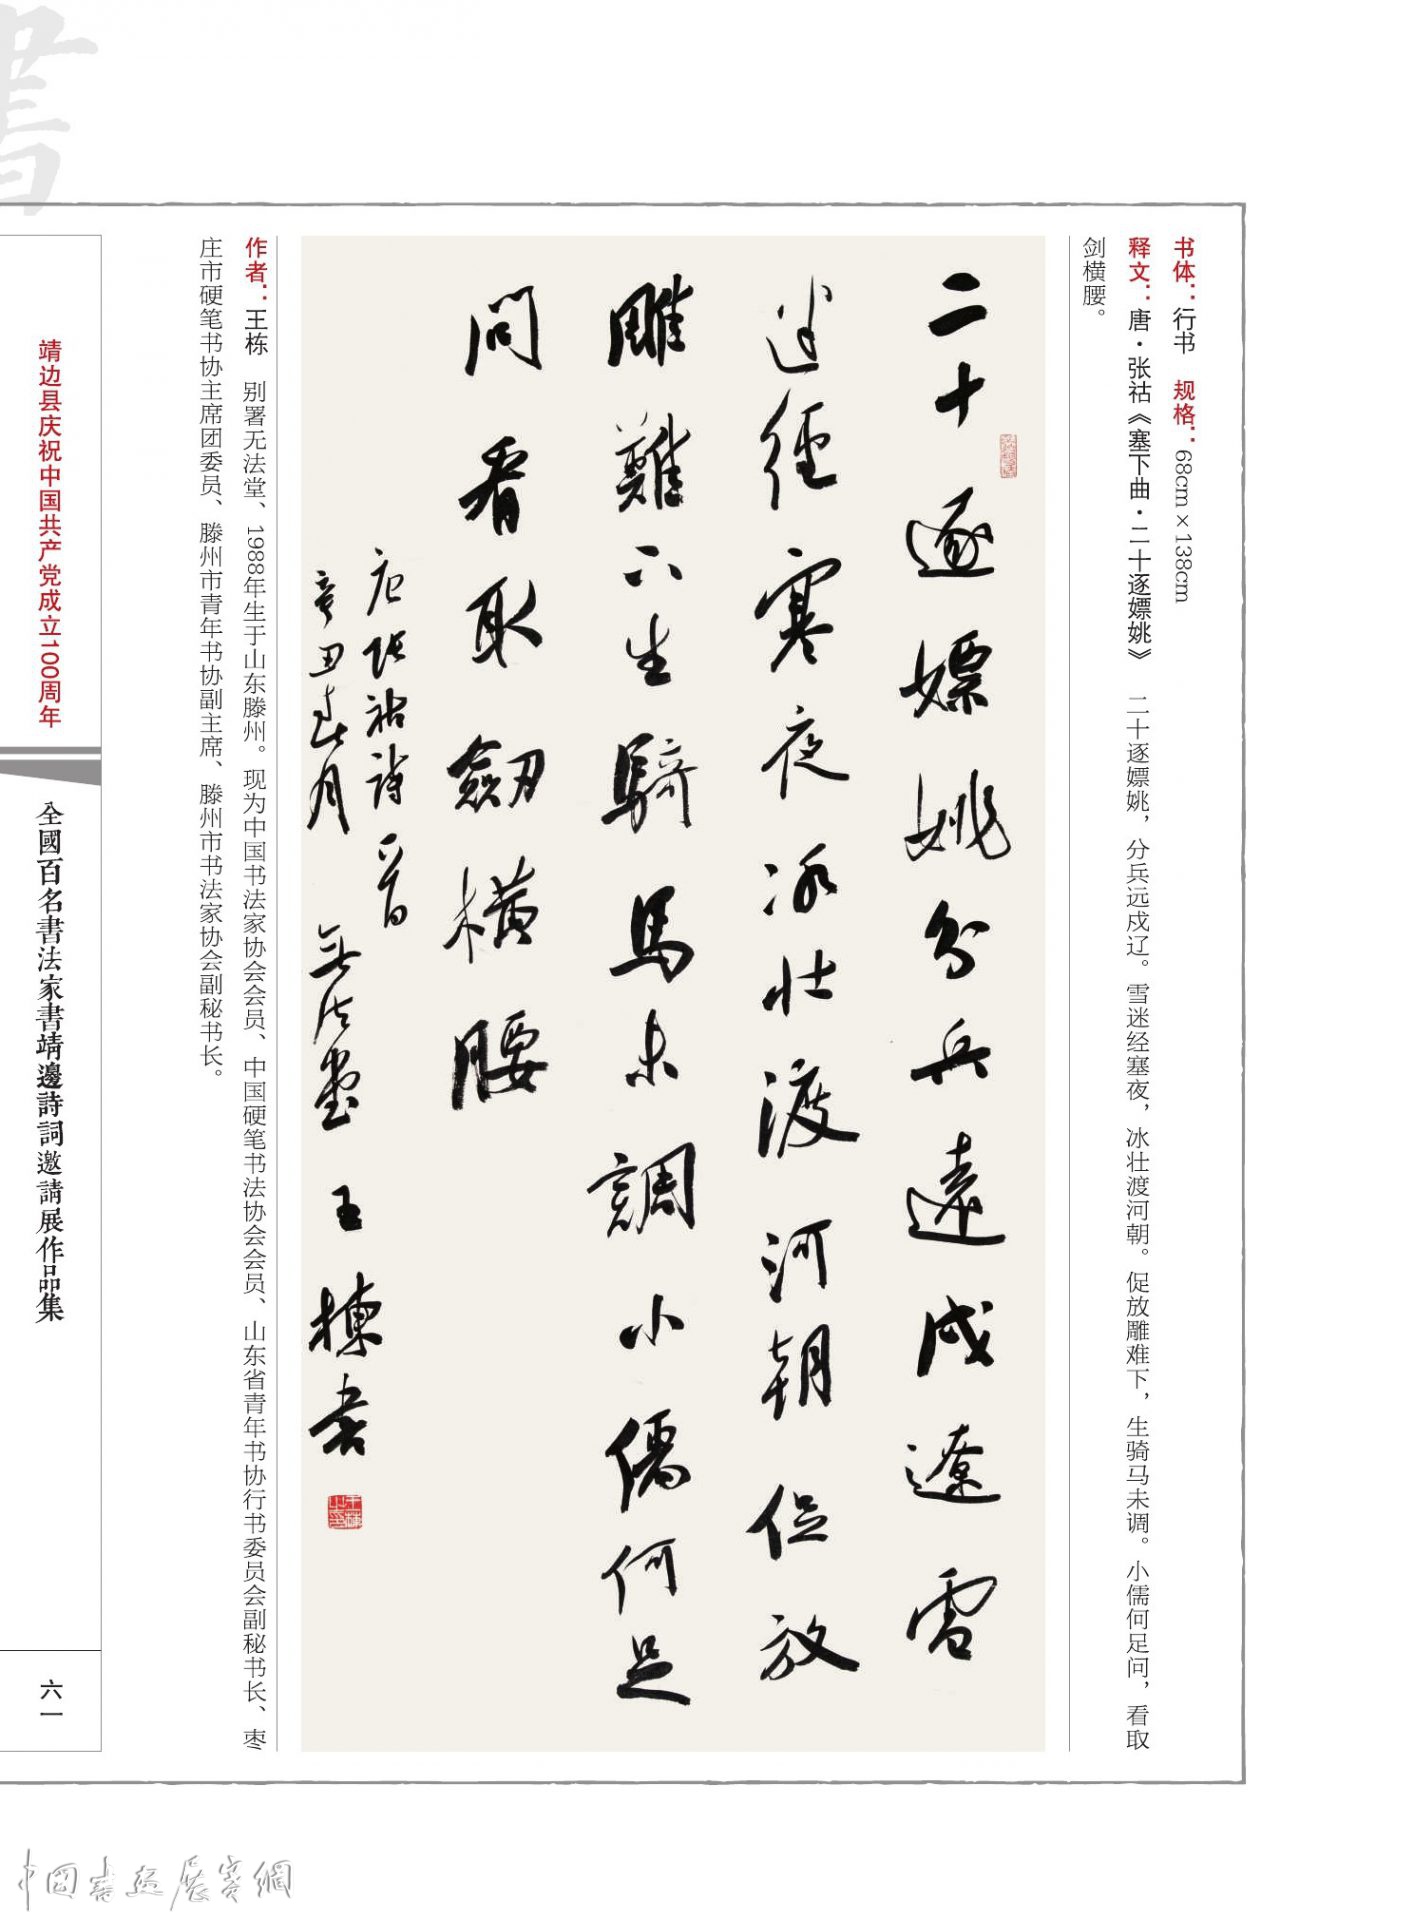 書
书体：行书　规格：68cm×138cm
释文：唐·张祜《塞下曲·二十逐嫖姚》　二十逐嫖姚，分兵远戍辽。雪迷经塞夜，冰壮渡河朝。促放雕难下，生骑马未调。小儒何足问，看取
剑横腰。
二十逐嫖姚分兵遠戍遼雪
迷經寒夜冰壮渡河朝促放
雕難下生騎馬未調小儒何足
問看取劔橫腰
唐張祜詩一首
辛丑春月 無法堂 王棟書
作者：王栋　别署无法堂、1988年生于山东滕州。现为中国书法家协会会员、中国硬笔书法协会会员、山东省青年书协行书委员会副秘书长、枣
庄市硬笔书协主席团委员、滕州市青年书协副主席、滕州市书法家协会副秘书长。
靖边县庆祝中国共产党成立100周年
全國百名書法家書靖邊詩詞邀請展作品集
六一
中國書畫展賽網